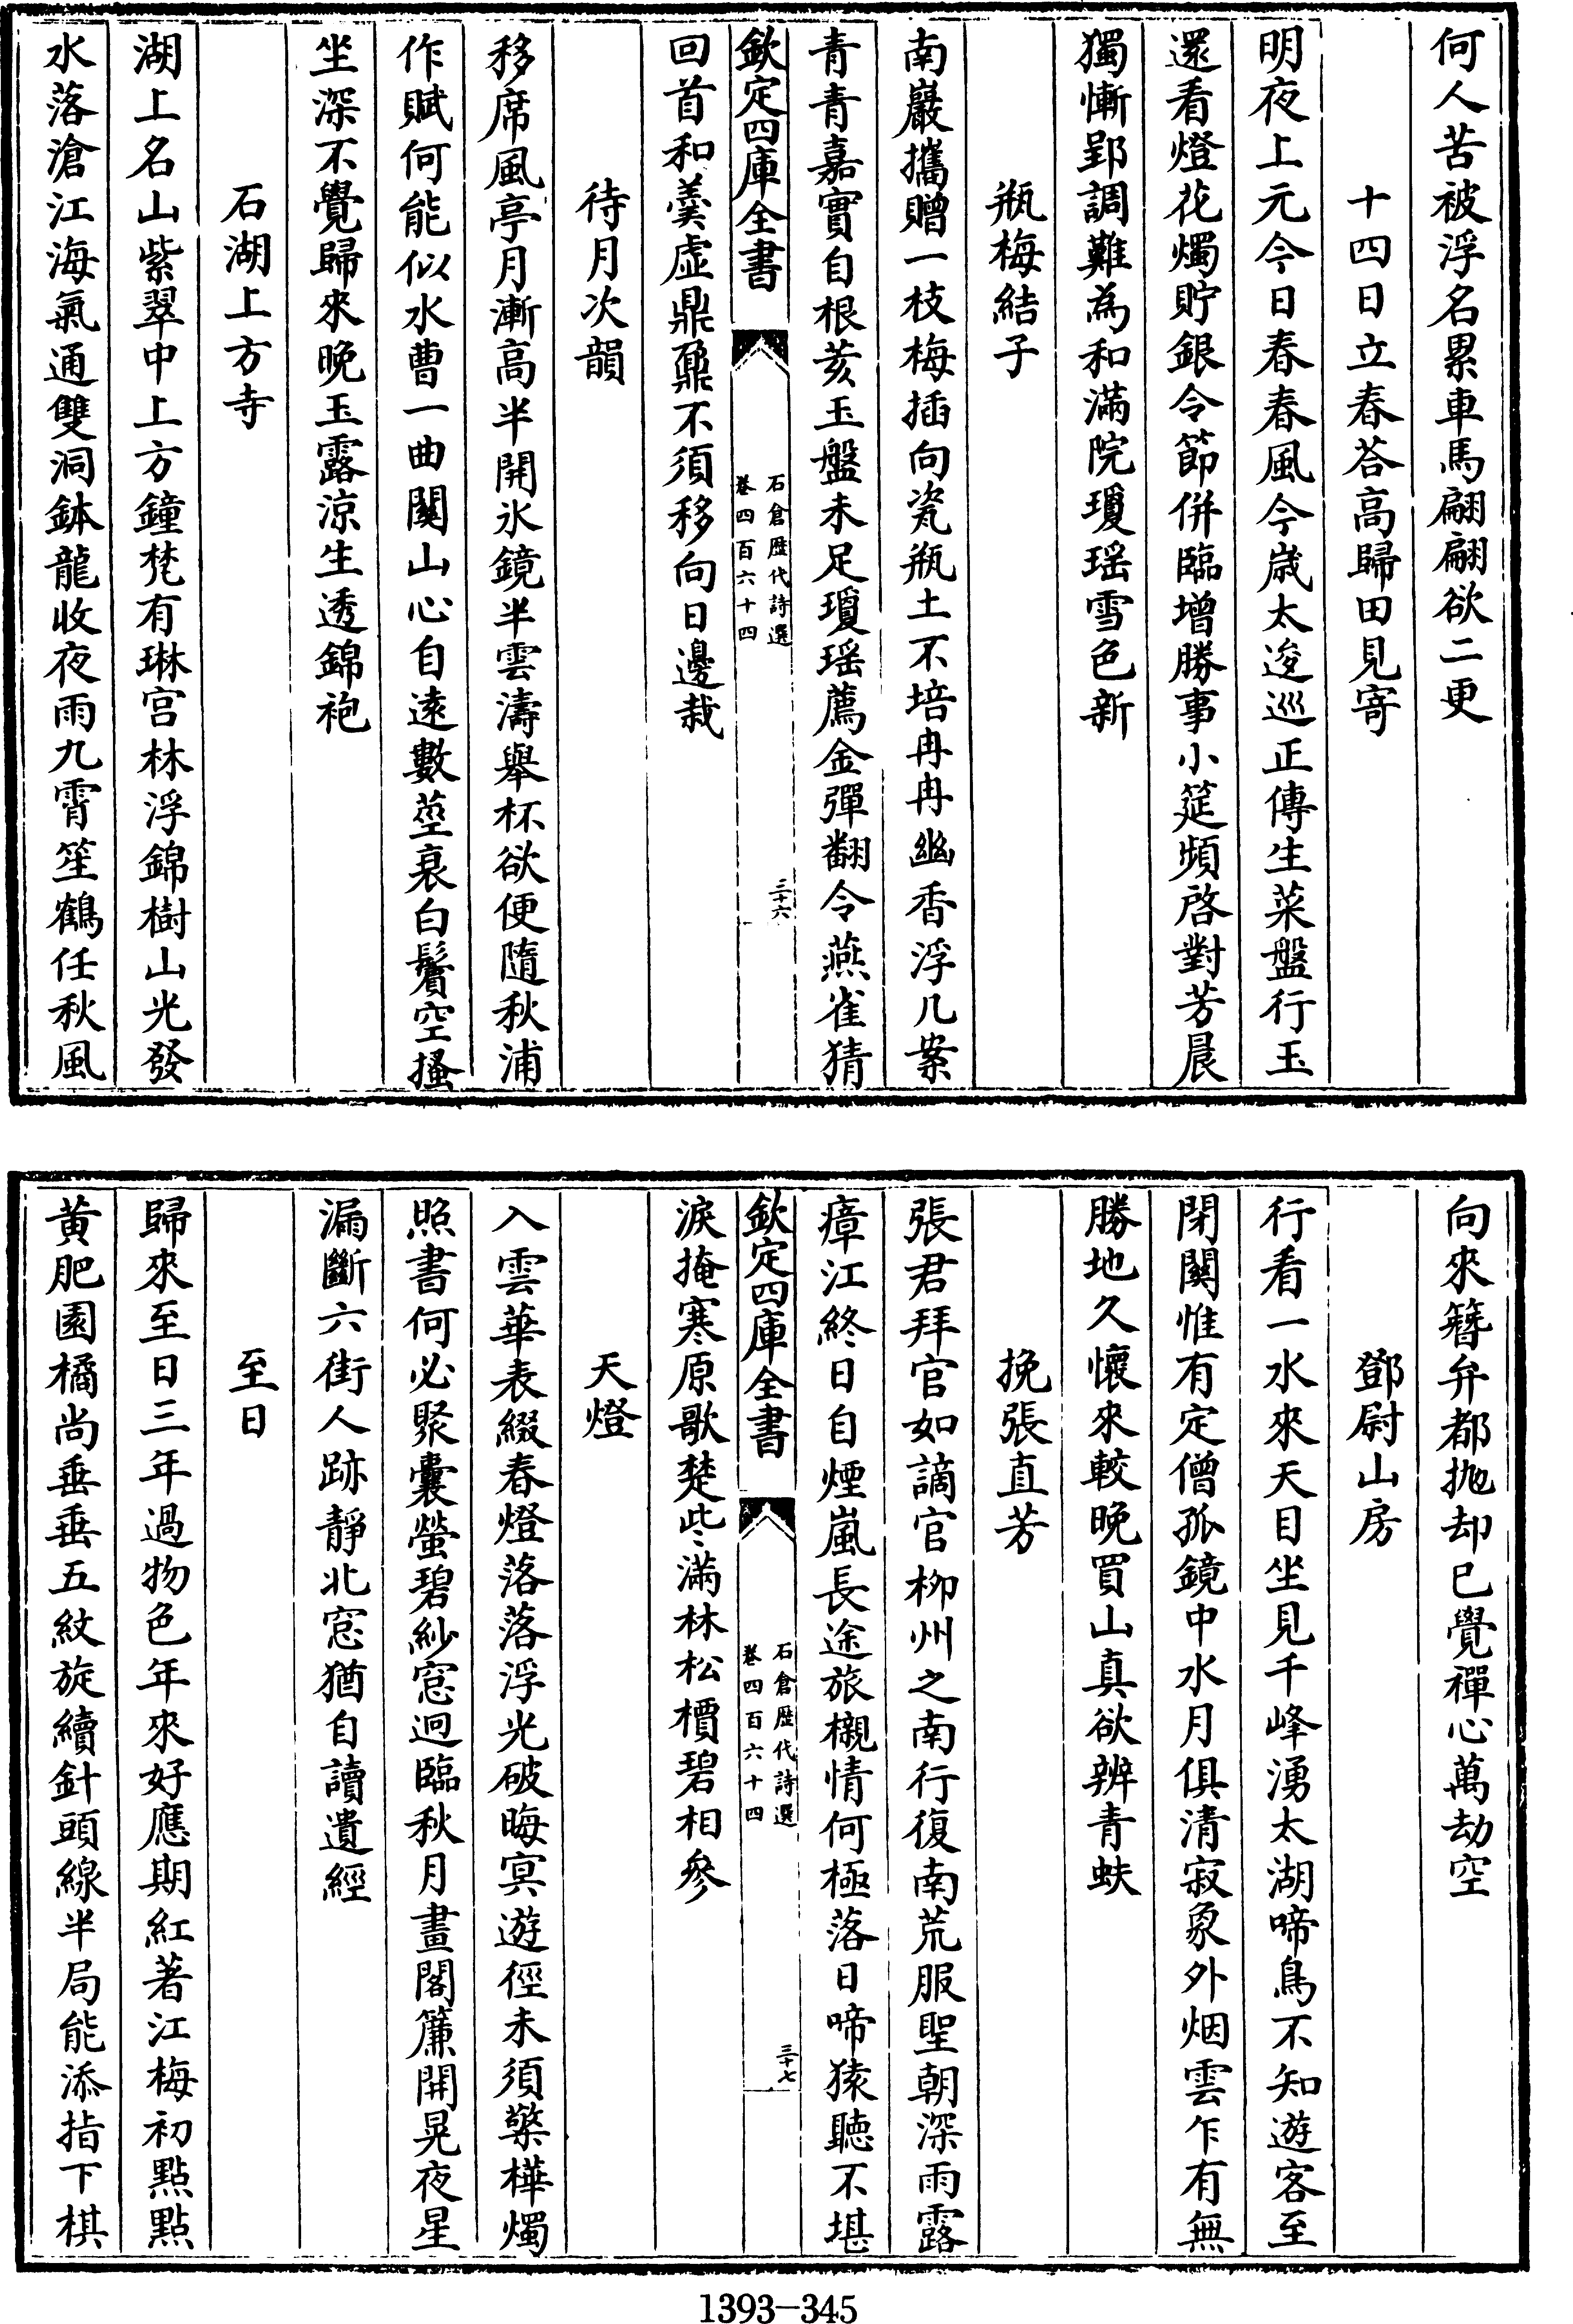 何人苦被浮名累車馬翩翩欲二更
十四日立春荅高歸田見寄
明夜上元今日春春風今歲太逡巡正傳生菜盤行玉
還看燈花燭貯銀令節併臨增勝事小筵頻啓對芳晨
獨慚郢調難為和滿院瓊瑶雪色新
瓶梅結子
南巖攜贈一枝梅插向瓷瓶土不培冉冉幽香浮几案
青青嘉實自根荄玉盤未足瓊瑶薦金彈翻令燕雀猜
欽定四庫全書
石倉歴代詩選
卷四百六十四
三十六
回首和羹虚鼎鼐不須移向日邊栽
待月次韻
移席風亭月漸高半開氷鏡半雲濤舉杯欲便隨秋浦
作賦何能似水曹一曲關山心自逺數莖衰白鬢空搔
坐深不覺歸來晚玉露涼生透錦袍
石湖上方寺
湖上名山紫翠中上方鐘梵有琳宫林浮錦樹山光發
水落滄江海氣通雙洞鉢龍收夜雨九霄笙鶴任秋風
向來簪弁都抛却已覺禪心萬劫空
鄧尉山房
行看一水來天目坐見千峰湧太湖啼鳥不知遊客至
閉關惟有定僧孤鏡中水月俱清寂象外烟雲乍有無
勝地久懷來較晚買山真欲辨青蚨
挽張直芳
張君拜官如謫官柳州之南行復南荒服聖朝深雨露
瘴江終日自煙嵐長途旅櫬情何極落日啼猿聽不堪
欽定四庫全書
石倉歴代詩選
卷四百六十四
三十七
淚掩寒原歌楚些滿林松檟碧相參
天燈
入雲華表綴春燈落落浮光破晦㝠遊徑未須檠樺燭
照書何必聚囊螢碧紗窓迥臨秋月畫閣簾開晃夜星
漏斷六街人跡靜北窓猶自讀遺經
至日
歸來至日三年過物色年來好應期紅著江梅初點點
黄肥園橘尚垂垂五紋旋續針頭線半局能添指下棋
1393-345